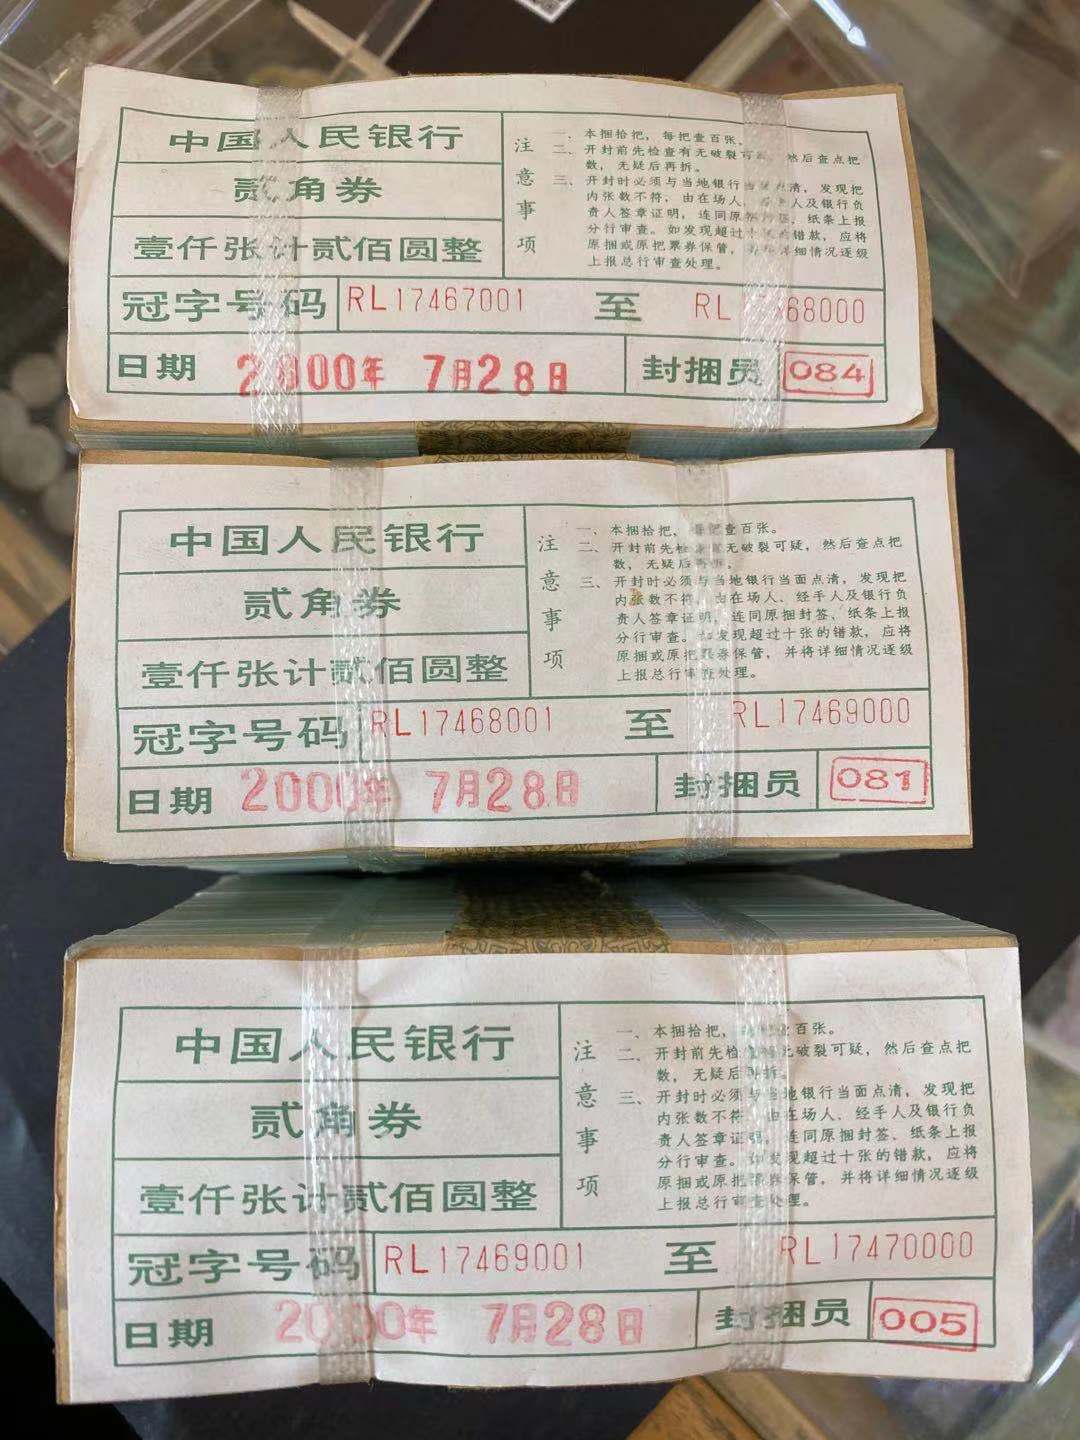 中国人民银行
贰角券
壹仟张计贰佰圆整
注意事项
一、本捆拾把，每把壹百张。
二、开封前先检查有无破裂可疑，然后查点把
数，无疑后再拆。
三、开封时必须与当地银行当面点清，发现把
内张数不符，由在场人、经手人及银行负
责人签章证明，连同原捆封签、纸条上报
分行审查。如发现超过十张的错款，应将
原捆或原把票券保管，并将详细情况逐级
上报总行审查处理。
冠字号码 RL17467001 至 RL17468000
日期 2000年 7月28日 封捆员 084
中国人民银行
贰角券
壹仟张计贰佰圆整
注意事项
一、本捆拾把，每把壹百张。
二、开封前先检查有无破裂可疑，然后查点把
数，无疑后再拆。
三、开封时必须与当地银行当面点清，发现把
内张数不符，由在场人、经手人及银行负
责人签章证明，连同原捆封签、纸条上报
分行审查。如发现超过十张的错款，应将
原捆或原把票券保管，并将详细情况逐级
上报总行审查处理。
冠字号码 RL17468001 至 RL17469000
日期 2000年 7月28日 封捆员 081
中国人民银行
贰角券
壹仟张计贰佰圆整
注意事项
一、本捆拾把，每把壹百张。
二、开封前先检查有无破裂可疑，然后查点把
数，无疑后再拆。
三、开封时必须与当地银行当面点清，发现把
内张数不符，由在场人、经手人及银行负
责人签章证明，连同原捆封签、纸条上报
分行审查。如发现超过十张的错款，应将
原捆或原把票券保管，并将详细情况逐级
上报总行审查处理。
冠字号码 RL17469001 至 RL17470000
日期 2000年 7月28日 封捆员 005